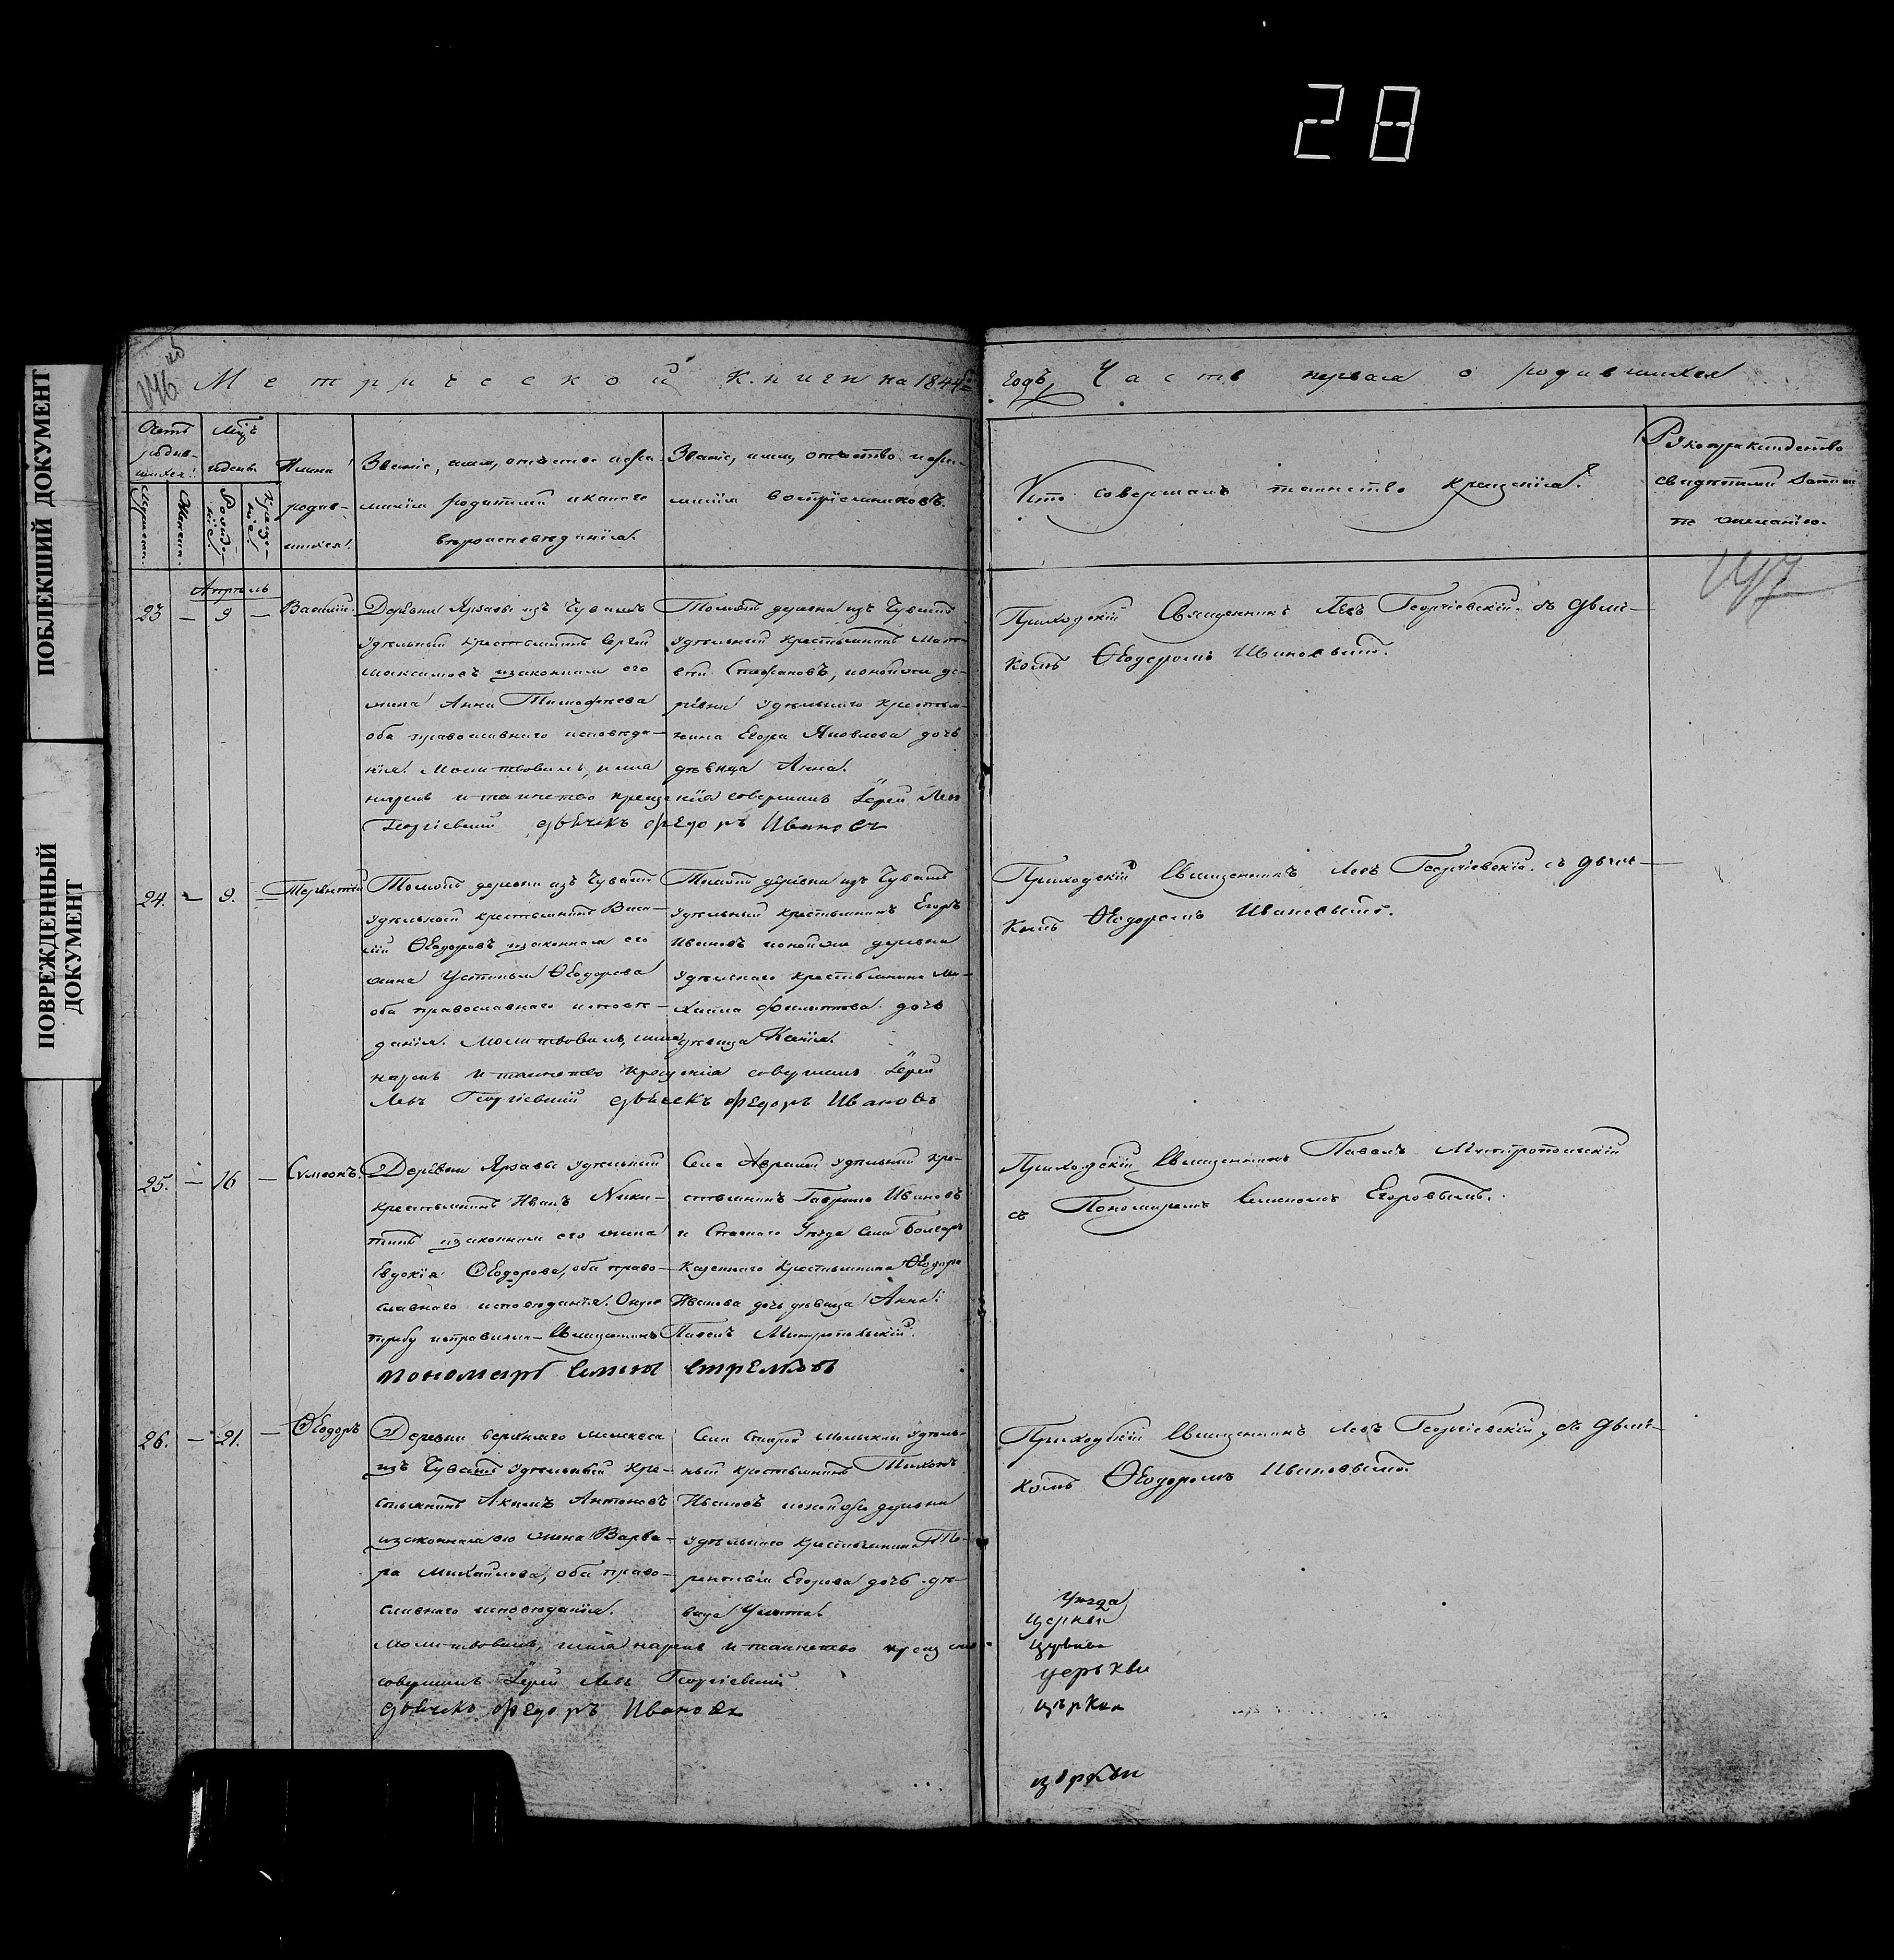 28
ПОБЛЕКШИЙ ДОКУМЕНТ
ПОВРЕЖДЕННЫЙ
ДОКУМЕНТ
Метрической книги на 1844й
годъ, Часть первая о родившихся
Счетъ
родив-
шихся.
Мужеска.
Женска.
Мцъ
и день
Рожде-
нiе.
Креще-
нiе.
Имена
родив-
шихся.
Званiе, имя, отчество и фа-
милiя родителей и какого
вѣроисповѣданiя.
Званiе, имя, отчество и фами-
милiя воспрiемниковъ.
Кто совершалъ таинство крещенiя?
Рукоприкладство
свидѣтелей записи
по желанiю.
147
Апрѣль
23 — 9 — Василiй.
Деревни изъ Чувашъ
удѣльный крестьянинъ Сергей
Максимовъ и законная его
жена Анна Тимофѣева
оба православнаго исповѣда-
нiя. Молитвовалъ, имя
нарекъ и таинство крещенiя совершилъ Iерей Левъ
Георгiевскiй дьячекъ Федоръ Ивановъ
Тойже деревни изъ Чувашъ
удѣльный крестьянинъ Мат-
вей Степановъ, и онойже де-
ревни удѣльнаго крестья-
нина Егора Яковлева дочь
дѣвица Анна.
Приходскiй Священникъ Левъ Георгiевскiй съ дьяч-
комъ Ѳеодоромъ Ивановымъ.
24. — 9. — Терентiй
Тойже деревни изъ Чувашъ
удѣльной крестьянинъ Васи-
лiй Ѳеодоровъ и законная его
жена Устинья Ѳеодорова
оба православнаго исповѣ-
данiя. Молитвовалъ, имя
нарекъ и таинство крещенiя совершилъ Iерей
Левъ Георгiевскiй дьячекъ Федоръ Ивановъ
Тойже деревни изъ Чувашъ
удѣльный крестьянинъ Егоръ
Ивановъ и онойже деревни
удѣльнаго крестьянина Ми-
хаила Филиппова дочь
дѣвица Ксенiя.
Приходскiй Священникъ Левъ Георгiевскiй съ дьяч-
комъ Ѳеодоромъ Ивановымъ.
25. — 16 — Сѵмеонъ.
Деревни удѣльный
крестьянинъ Иванъ Ники-
тинъ и законная его жена
Евдокiя Ѳеодорова, оба право-
славнаго исповѣданiя. Оную
требу исправилъ Священникъ Павелъ Митропольскiй.
пономарь Семенъ Стрелковъ
Села удѣльный кре-
стьянинъ Гаврило Ивановъ
и Спаскаго Уѣзда села Болгаръ
казеннаго крестьянина Ѳеодора
Иванова дочь дѣвица Анна.
Приходскiй Священникъ Павелъ Митропольскiй
съ Пономаремъ Семеномъ Егоровымъ.
26. — 21. — Ѳеодоръ
Деревни верхняго мелекеса
изъ Чувашъ удѣльный кре-
стьянинъ Акимъ Антоновъ
и законная его жена Варва-
ра Михайлова, оба право-
славнаго исповѣданiя.
Молитвовалъ, имя нарекъ и таинство крещенiя
совершилъ Iерей Левъ Георгiевскiй.
дьячекъ Федоръ Ивановъ
Села Старой удѣль-
ный крестьянинъ Тихонъ
Ивановъ и онойже деревни
удѣльнаго крестьянина Те-
рентья Егорова дочь дѣ-
вица
Приходскiй Священникъ Левъ Георгiевскiй, съ дьяч-
комъ Ѳеодоромъ Ивановымъ.
Уѣзда
церкви
церкви
церькви
церкви
церкви